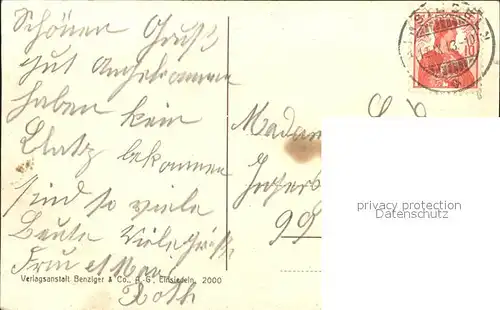 Schöner Gruß
gut Angekommen
haben kein
Platz bekommen
sind so viele
Leute Viele Grüße
Frau et Mari
Roth
Verlagsanstalt Benziger & Co., A.-G., Einsiedeln, 2000
Madam
99
privacy protection
Datenschutz